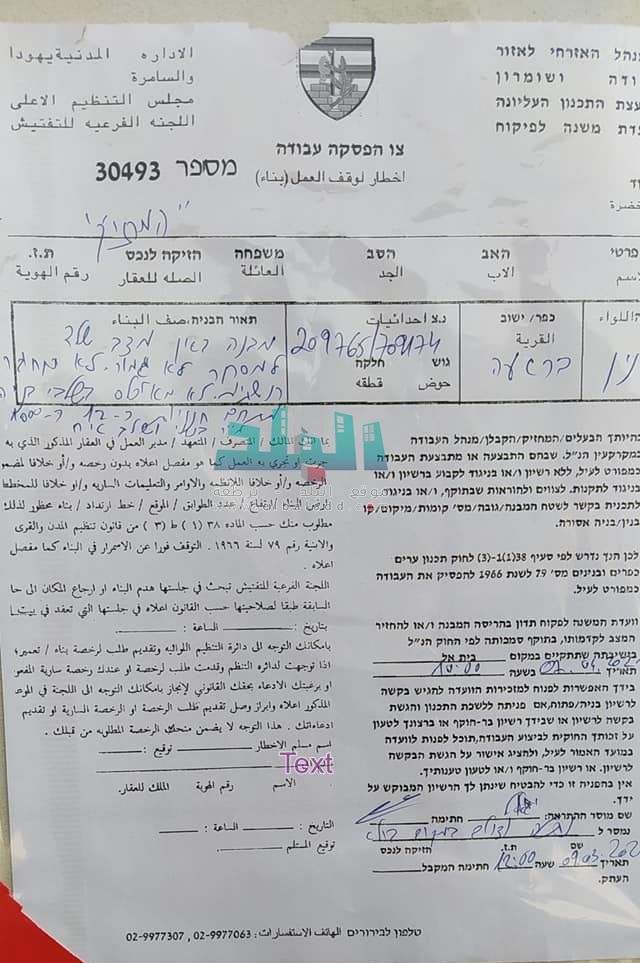 الاداره المدنية يهودا
والسامرة
مجلس التنظيم الاعلى
اللجنه الفرعيه للتفتيش
מנהל האזרחי לאזור
יהודה ושומרון
מועצת התכנון העליונה
ועדת משנה לפיקוח
צו הפסקה עבודה
اخطار لوقف العمل (بناء)
מספר 30493
"המחזיק"
פרטי האב הסב משפחה הזיקה לנכס ת.ז.
الاسم الاب الجد العائلة الصله للعقار رقم الهوية
اللواء
כפר/ישוב
القرية
נ.צ احداثيات
209765/709174
גוש חלקה
حوض قطعه
תאור הבניה. صف البناء
מבנה
למסחר לא גמור. לא
היותך הבעלים/המחזיק/הקבלן/מנהל העבודה
במקרקעין הנ"ל. שבהם התבצעה או מתבצעת העבודה
כמפורט לעיל, ללא רשיון ו/או בניגוד לקבוע ברשיון ו/או
בניגוד לתקנות. לצווים ולהוראות שבתוקף, ו/או בניגוד
לתכנית בקשר לשטח המבנה/גובה/מס' קומות/מיקום/קו
בנין/בניה אסורה.
לכן הנך נדרש לפי סעיף 38(1)(1-3) לחוק תכנון ערים
כפרים ובנינים מס' 79 לשנת 1966 להפסיק את העבודה
כמפורט לעיל.
וועדת המשנה לפקוח תדון בהריסת המבנה ו/או להחזיר
המצב לקדמותו, בתוקף סמכותה לפי החוק הנ"ל
בישיבתה שתתקיים במקום בית אל
תאריך בשעה 10:00
בידך האפשרות לפנות למזכירות הוועדה להגיש בקשה
לרשיון בניה/פתוח, אם פנית ללשכת התכנון והגשת
בקשה לרשיון או שבידך רשיון בר-חוקף או ברצונך לטעון
על זכותך החוקית לביצוע העבודה, תוכל לפנות לוועדה
במועד האמור לעיל, ולהציג אישור על הגשת הבקשה
לרשיון. או רשיון בר-חוקף ו/או לטעון טענותיך.
אין בהפניה זו כדי להבטיח שינתן לך הרשיון המבוקש על
ידך.
שם מוסר ההתראה: חתימה
נמסר ל
שם ת.ז. הזיקה לנכס
תאריך 09.03.202 שעה 12:00 חתימה המקבל
העתק.
بما انك المالك / المتصرف / المتعهد / مدير العمل في العقار المذكور الذي به
جرت او تجري به العمل كما هو مفصل اعلاه بدون رخصه و/أو خلافا
الرخصه و/أو خلافا للانظمه والاوامر والتعليمات الساريه و/او خلافا للمخطط
ارتفاع / عدد الطوابق / الموقع / خط ارتداد / بناء محظور لذلك
مطلوب منك حسب الماده ٣٨ (١) ط (٣) من قانون تنظيم المدن والقرى
والابنية رقم ٧٩ لسنة ١٩٦٦ . التوقف فورا عن الاسمرار في البناء كما مفصل
اعلاه .
اللجنة الفرعية للتفتيش تبحث في جلستها هدم البناء او ارجاع المكان الى
السابقة طبقا لصلاحيتها حسب القانون اعلاه في جلستها التي تعقد في
بتاريخ - الساعة :
بامكانك التوجه الى دائرة التنظيم اللوائيه وتقديم طلب لرخصة بناء / تعمير؛
اذا توجهت لدائره التنظيم وقدمت طلب لرخصة او عندك رخصة سارية
او برغبتك الادعاء بحقك القانوني لإنجاز بامكانك التوجه الى اللجنة في
المذكور اعلاه وابراز وصل تقديم طلب الرخصة او الرخصة السارية او تقديم
ادعاءاتك . هذا التوجه لا يضمن منحك الرخصة المطلوبه من قبلك .
اسم مسلم الاخطار توقيع :
Text
الاسم رقم الهوية الملك للعقار.
التاريخ : الساعة :
توقيع المستلم
البلد
موقع البلد
טלפון לבירורים الهاتف الاستفسارات: 02-9977063 ,02-9977307